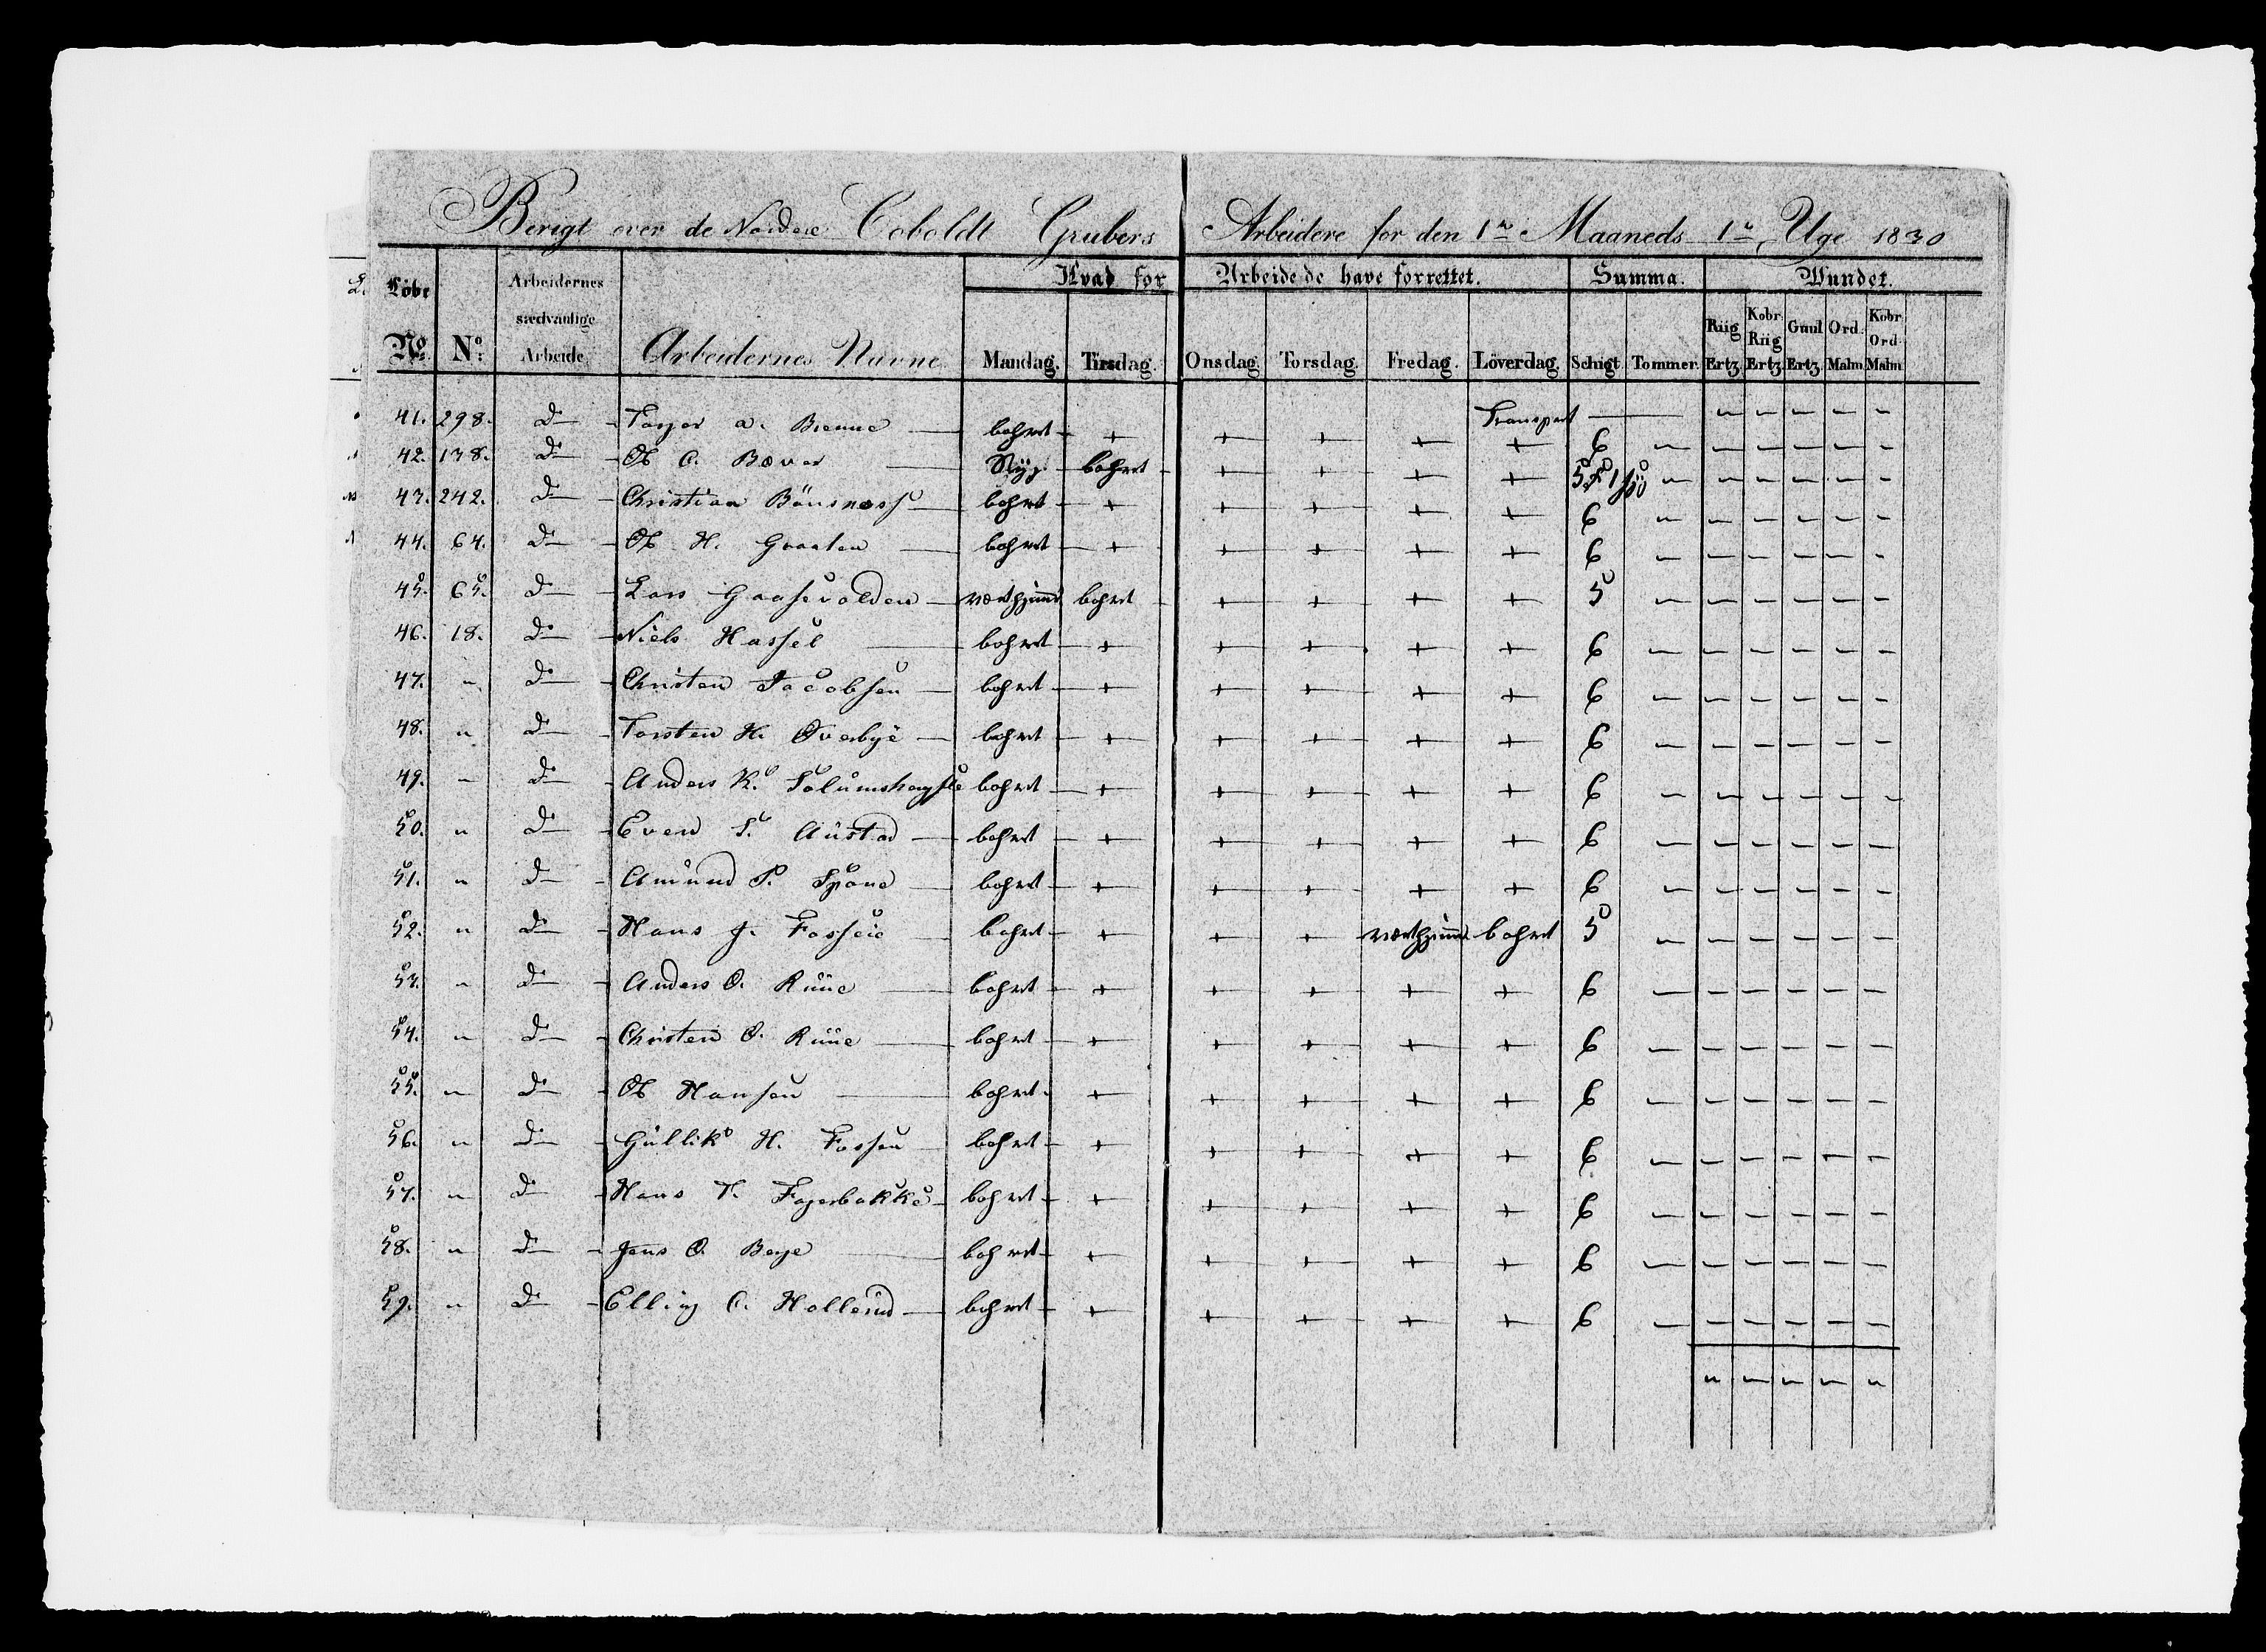 Berigt over de Nordre Coboldt Grubers Arbeidere for den 1te Maaneds 1te Uge 1830
Löbe No. No. Arbeidernes sædvanlige Arbeide Arbeidernes Navne Hvad for Arbeide de have forrettet. Summa. Vundet.
Mandag. Tirsdag. Onsdag. Torsdag. Fredag. Löverdag. Schigt. Tommer. Riig Ertz. Kobr: Riig Ertz. Guul Ertz. Ord: Malm. Kobr: Ord: Malm
Transport — " " " " "
41. 298. do Torger a. Brenne bohret + + + + + 6 " " " " " "
42. 138. do Ol C. Bæver bohret + + + + " " " " " "
43. 242. do Christian Bönsnæss bohret + + + + + 6 " " " " " "
44. 64. do Ol H. Graaten bohret + + + + + 6 " " " " " "
45. 65. do Lars Gaasevolden bohret + + + + 5 " " " " " "
46. 18. do Niels Hassel bohret + + + + + 6 " " " " " "
47. " do Christen Jacobsen bohret + + + + + 6 " " " " " "
48. " do Torsten H. Overbye bohret + + + + + 6 " " " " " "
49. " do Anders K. bohret + + + + + 6 " " " " " "
50. " do Even S. Austad bohret + + + + + 6 " " " " " "
51. " do Amund P. Spone bohret + + + + + 6 " " " " " "
52. " do Hans J. Fosseie bohret + + + bohret 5 " " " " " "
53. " do Anders O. Ruue bohret + + + + + 6 " " " " " "
54. " do Christen O. Ruue bohret + + + + + 6 " " " " " "
55. " do Ol Hansen bohret + + + + + 6 " " " " " "
56. " do Gullik H. Fossen bohret + + + + + 6 " " " " " "
57. " do Hans T. Fagerbakke bohret + + + + + 6 " " " " " "
58. " do Jens O. Beye bohret + + + + + 6 " " " " " "
59. " do Elling C. Hollerud bohret + + + + + 6 " " " " " "
" " " " "